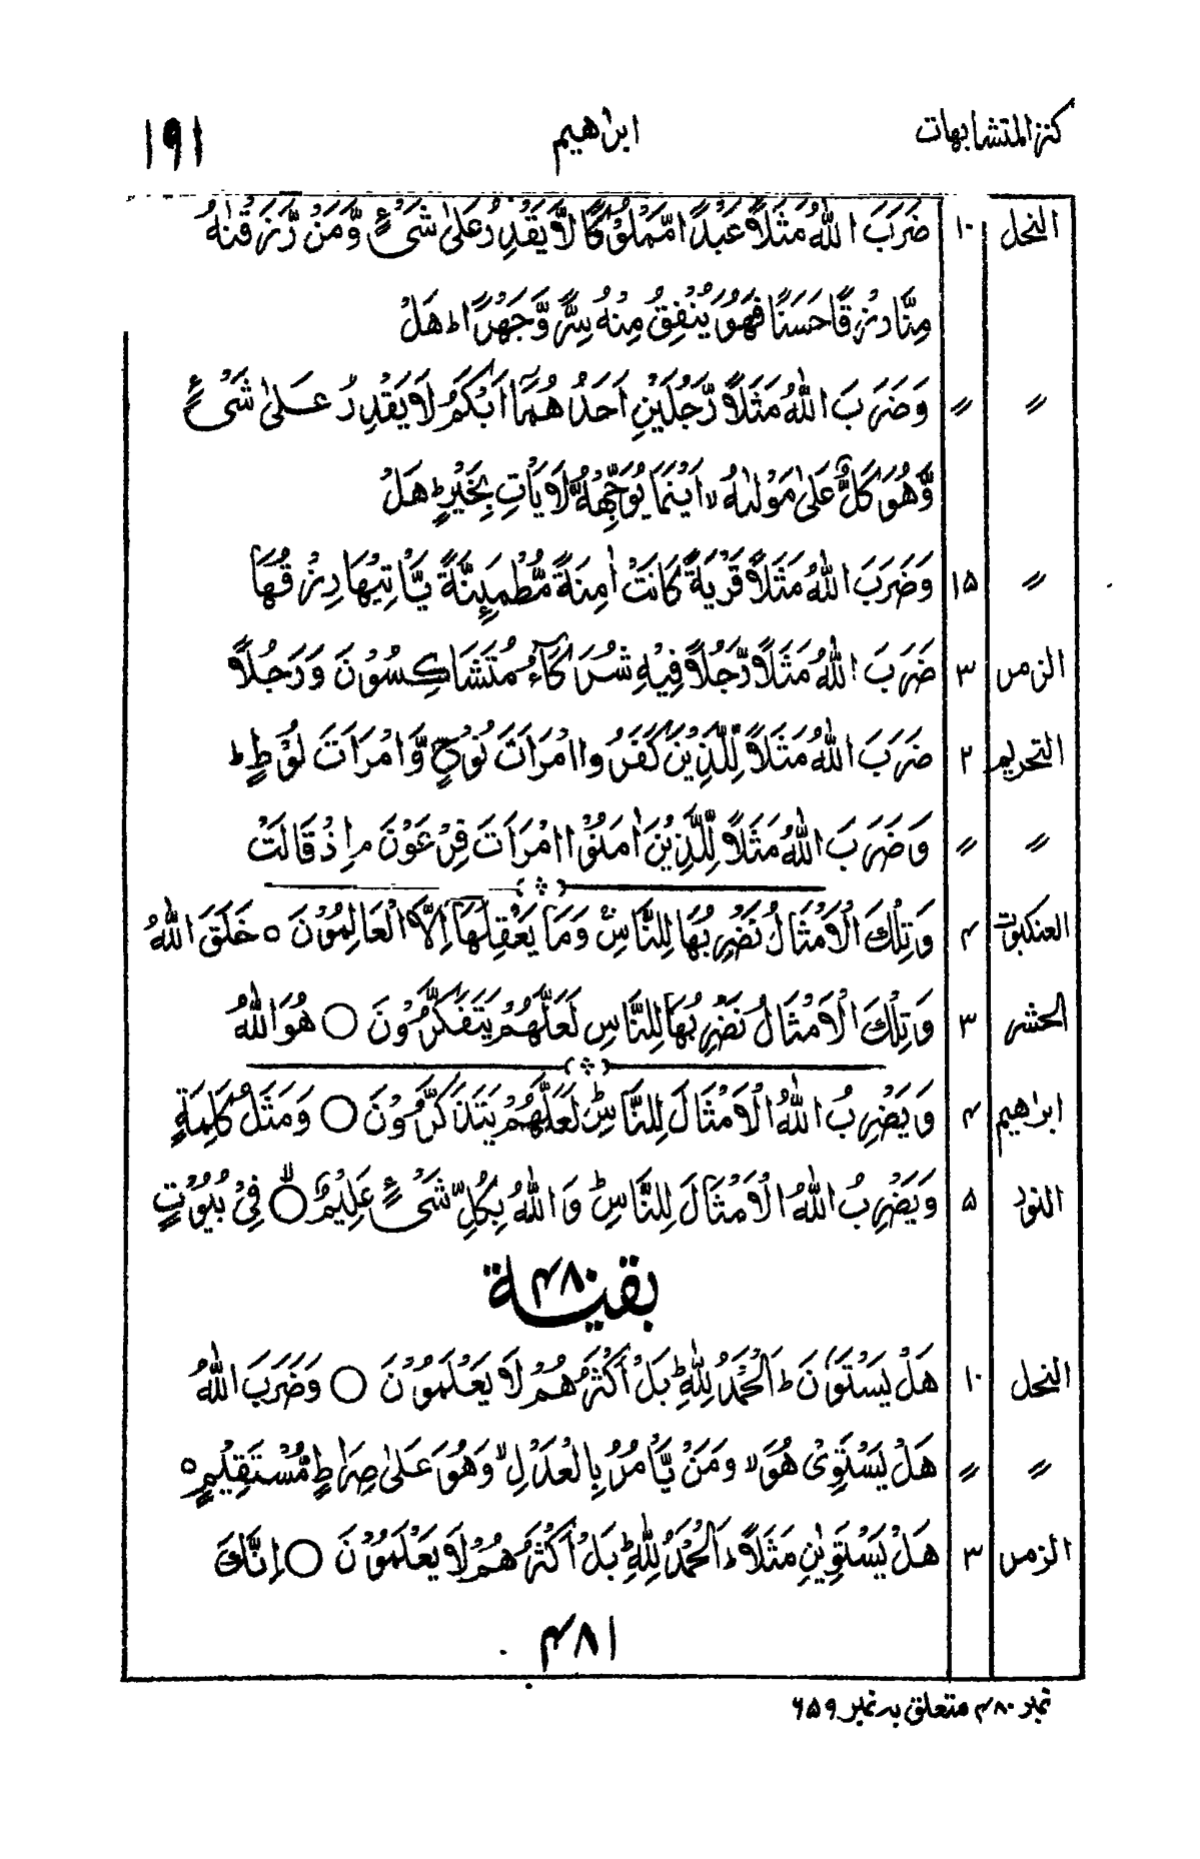 كنز المتشابهات ابراهيم ١٩١
النحل ١٠ ضَرَبَ اللّٰهُ مَثَلًا عَبْدًا مَّمْلُوْكًا لَّا يَقْدِرُ عَلٰى شَىْءٍ وَّمَنْ رَّزَقْنٰهُ
مِنَّا رِزْقًا حَسَنًا فَهُوَ يُنْفِقُ مِنْهُ سِرًّا وَّجَهْرًا ؕ هَلْ
〃 〃 وَضَرَبَ اللّٰهُ مَثَلًا رَّجُلَيْنِ اَحَدُهُمَاۤ اَبْكَمُ لَا يَقْدِرُ عَلٰى شَىْءٍ
وَّهُوَ كَلٌّ عَلٰى مَوْلٰىهُ ۙ اَيْنَمَا يُوَجِّهْهُّ لَا يَاْتِ بِخَيْرٍ ؕ هَلْ
〃 ١٥ وَضَرَبَ اللّٰهُ مَثَلًا قَرْيَةً كَانَتْ اٰمِنَةً مُّطْمَئِنَّةً يَّاْتِيْهَا رِزْقُهَا
الزمر ٣ ضَرَبَ اللّٰهُ مَثَلًا رَّجُلًا فِيْهِ شُرَكَآءُ مُتَشَاكِسُوْنَ وَرَجُلًا
التحريم ٢ ضَرَبَ اللّٰهُ مَثَلًا لِّلَّذِيْنَ كَفَرُوا امْرَاَتَ نُوْحٍ وَّامْرَاَتَ لُوْطٍ ؕ
〃 〃 وَضَرَبَ اللّٰهُ مَثَلًا لِّلَّذِيْنَ اٰمَنُوا امْرَاَتَ فِرْعَوْنَ ۘ اِذْ قَالَتْ
العنكبوت ۴ وَتِلْكَ الْاَمْثَالُ نَضْرِبُهَا لِلنَّاسِ ۚ وَمَا يَعْقِلُهَاۤ اِلَّا الْعَالِمُوْنَ ○ خَلَقَ اللّٰهُ
الحشر ٣ وَتِلْكَ الْاَمْثَالُ نَضْرِبُهَا لِلنَّاسِ لَعَلَّهُمْ يَتَفَكَّرُوْنَ ○ هُوَ اللّٰهُ
ابراهيم ۴ وَيَضْرِبُ اللّٰهُ الْاَمْثَالَ لِلنَّاسِ لَعَلَّهُمْ يَتَذَكَّرُوْنَ ○ وَمَثَلُ كَلِمَةٍ
النور ۵ وَيَضْرِبُ اللّٰهُ الْاَمْثَالَ لِلنَّاسِ ؕ وَاللّٰهُ بِكُلِّ شَىْءٍ عَلِيْمٌ ○ فِىْ بُيُوْتٍ
بقية ۴٨٠
النحل ١٠ هَلْ يَسْتَوٗنَ ؕ اَلْحَمْدُ لِلّٰهِ ؕ بَلْ اَكْثَرُهُمْ لَا يَعْلَمُوْنَ ○ وَضَرَبَ اللّٰهُ
〃 〃 هَلْ يَسْتَوِىْ هُوَ ۙ وَمَنْ يَّاْمُرُ بِالْعَدْلِ ۙ وَهُوَ عَلٰى صِرَاطٍ مُّسْتَقِيْمٍ ○
الزمر ٣ هَلْ يَسْتَوِيٰنِ مَثَلًا ؕ اَلْحَمْدُ لِلّٰهِ ؕ بَلْ اَكْثَرُهُمْ لَا يَعْلَمُوْنَ ○ اِنَّكَ
۴٨١
نمبر ۴٨٠ متعلق بہ نمبر ۶۵۹